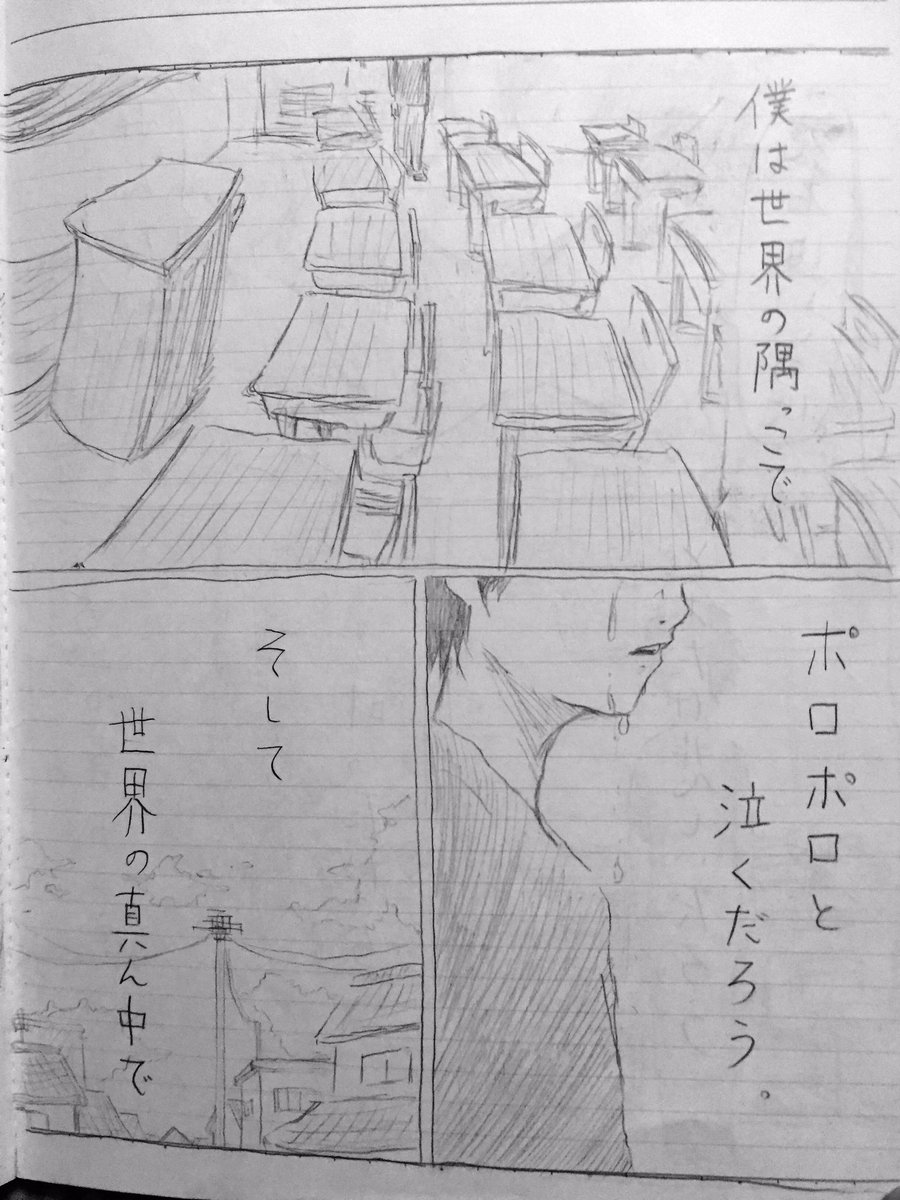 僕は世界の隅っこで
ポロポロと
泣くだろう。
そして
世界の真ん中で